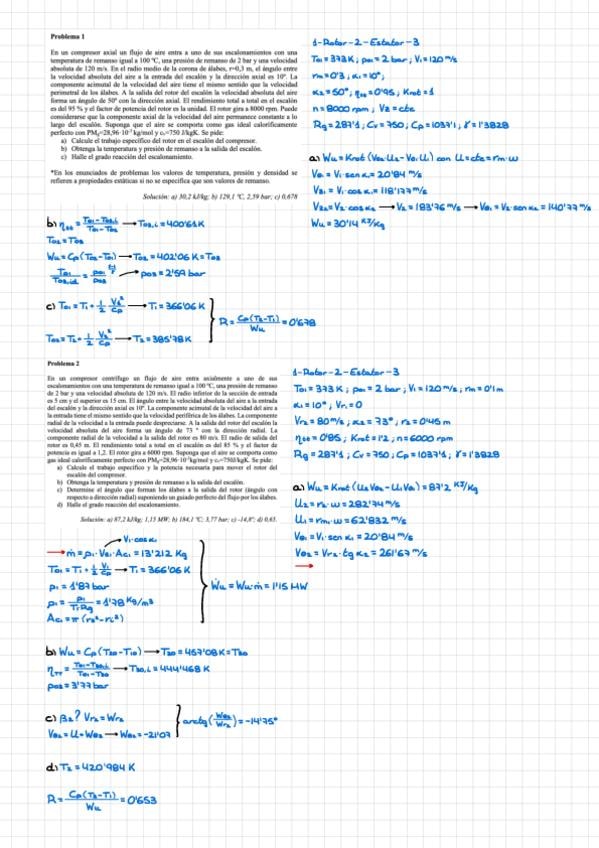 Problema 1
En un compresor axial un flujo de aire entra a uno de sus escalonamientos con una
temperatura de remanso igual a 100 ºC, una presión de remanso de 2 bar y una velocidad
absoluta de 120 m/s. En el radio medio de la corona de álabes, r=0,3 m, el ángulo entre
la velocidad absoluta del aire a la entrada del escalón y la dirección axial es 10º. La
componente acimutal de la velocidad del aire tiene el mismo sentido que la velocidad
perimetral de los álabes. A la salida del rotor del escalón la velocidad absoluta del aire
forma un ángulo de 50º con la dirección axial. El rendimiento total a total en el escalón
es del 95 % y el factor de potencia del rotor es la unidad. El rotor gira a 8000 rpm. Puede
considerarse que la componente axial de la velocidad del aire permanece constante a lo
largo del escalón. Suponga que el aire se comporta como gas ideal calóricamente
perfecto con PMg=28,96·10⁻³ kg/mol y cv=750 J/kgK. Se pide:
a) Calcule el trabajo específico del rotor en el escalón del compresor.
b) Obtenga la temperatura y presión de remanso a la salida del escalón.
c) Halle el grado reacción del escalonamiento.
*En los enunciados de problemas los valores de temperatura, presión y densidad se
refieren a propiedades estáticas si no se especifica que son valores de remanso.
Solución: a) 30,2 kJ/kg; b) 129,1 ºC, 2,59 bar; c) 0,678
1-Rotor-2-Estator-3
T01 = 373K ; p01 = 2 bar ; V1 = 120 m/s
rm = 0'3 ; α1 = 10° ;
α2 = 50° ; ηtt = 0'95 ; Krot = 1
n = 8000 rpm ; Vz = cte
Rg = 287'1 ; Cv = 750 ; Cp = 1037'1 ; γ = 1'3828
a) Wu = Krot (Vθ2·U2 - Vθ1·U1) con U = cte = rm·ω
Vθ1 = V1·sen α1 = 20'84 m/s
Vz1 = V1·cos α1 = 118'177 m/s
Vz2 = V2·cos α2 → V2 = 183'76 m/s → Vθ2 = V2·sen α2 = 140'77 m/s
Wu = 30'14 KJ/Kg
b) ηtt = (T01 - T03,i)/(T01 - T03) → T03,i = 400'61 K
T02 = T03
Wu = Cp (T02 - T01) → T02 = 402'06 K = T03
→ p03 = 2'59 bar
c) T01 = T1 + 1/2 V1²/Cp → T1 = 366'06 K
→ T2 = 385'78 K
R = Cp(T2-T1)/Wu = 0'678
Problema 2
En un compresor centrífugo un flujo de aire entra axialmente a uno de sus
escalonamientos con una temperatura de remanso igual a 100 ºC, una presión de remanso
de 2 bar y una velocidad absoluta de 120 m/s. El radio inferior de la sección de entrada
es 5 cm y el superior es 15 cm. El ángulo entre la velocidad absoluta del aire a la entrada
del escalón y la dirección axial es 10º. La componente acimutal de la velocidad del aire a
la entrada tiene el mismo sentido que la velocidad periférica de los álabes. La componente
radial de la velocidad a la entrada puede despreciarse. A la salida del rotor del escalón la
velocidad absoluta del aire forma un ángulo de 73 º con la dirección radial. La
componente radial de la velocidad a la salida del rotor es 80 m/s. El radio de salida del
rotor es 0,45 m. El rendimiento total a total en el escalón es del 85 % y el factor de
potencia es igual a 1,2. El rotor gira a 6000 rpm. Suponga que el aire se comporta como
gas ideal calóricamente perfecto con PMg=28,96·10⁻³ kg/mol y cv=750 J/kgK. Se pide:
a) Calcule el trabajo específico y la potencia necesaria para mover el rotor del
escalón del compresor.
b) Obtenga la temperatura y presión de remanso a la salida del escalón.
c) Determine el ángulo que forman los álabes a la salida del rotor (ángulo con
respecto a dirección radial) suponiendo un guiado perfecto del flujo por los álabes.
d) Halle el grado reacción del escalonamiento.
Solución: a) 87,2 kJ/kg; 1,15 MW; b) 184,1 ºC; 3,77 bar; c) -14,8º; d) 0,65.
1-Rotor-2-Estator-3
T01 = 373 K ; p01 = 2 bar ; V1 = 120 m/s ; rm = 0'1 m
α1 = 10° ; Vr1 = 0
Vr2 = 80 m/s ; α2 = 73° ; r2 = 0'45 m
ηtt = 0'85 ; Krot = 1'2 ; n = 6000 rpm
Rg = 287'1 ; Cv = 750 ; Cp = 1037'1 ; γ = 1'3828
a) Wu = Krot (U2·Vθ2 - U1·Vθ1) = 87'2 KJ/Kg
U2 = r2·ω = 282'74 m/s
U1 = rm·ω = 62'832 m/s
Vθ1 = V1·sen α1 = 20'84 m/s
Vθ2 = Vr2·tg α2 = 261'67 m/s
→
V1·cos α1
→ ṁ = ρ1·Vz1·Ac1 = 13'212 Kg
→ T1 = 366'06 K
p1 = 1'87 bar
ρ1 = p1/(T1·Rg) = 1'78 Kg/m³
Ac1 = π(rs² - ri²)
Ẇu = Wu·ṁ = 1'15 MW
b) Wu = Cp (T20 - T10) → T20 = 457'08 K = T30
ηTT = (T01 - T30,i)/(T01 - T30) → T30,i = 444'468 K
p03 = 3'77 bar
c) β2? Vr2 = Wr2
Vθ2 = U + Wθ2 → Wθ2 = -21'07
arctg (Wθ2/Wr2) = -14'75°
d) T2 = 420'984 K
R = Cp(T2-T1)/Wu = 0'653